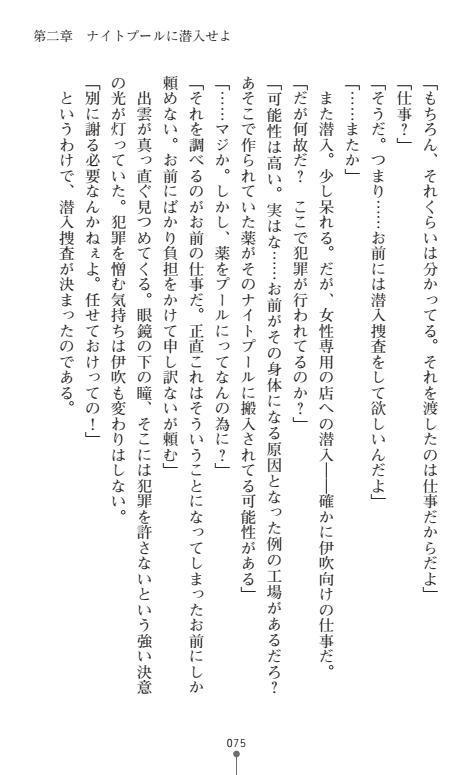 第二章　ナイトプールに潜入せよ
「もちろん、それくらいは分かってる。それを渡したのは仕事だからだよ」
「仕事？」
「そうだ。つまり……お前には潜入捜査をして欲しいんだよ」
「……またか」
　また潜入。少し呆れる。だが、女性専用の店への潜入――確かに伊吹向けの仕事だ。
「だが何故だ？　ここで犯罪が行われてるのか？」
「可能性は高い。実はな……お前がその身体になる原因となった例の工場があるだろ？
あそこで作られていた薬がそのナイトプールに搬入されてる可能性がある」
「……マジか。しかし、薬をプールにってなんの為に？」
「それを調べるのがお前の仕事だ。正直これはそういうことになってしまったお前にしか
頼めない。お前にばかり負担をかけて申し訳ないが頼む」
　出雲が真っ直ぐ見つめてくる。眼鏡の下の瞳、そこには犯罪を許さないという強い決意
の光が灯っていた。犯罪を憎む気持ちは伊吹も変わりはしない。
「別に謝る必要なんかねぇよ。任せておけっての！」
　というわけで、潜入捜査が決まったのである。
075